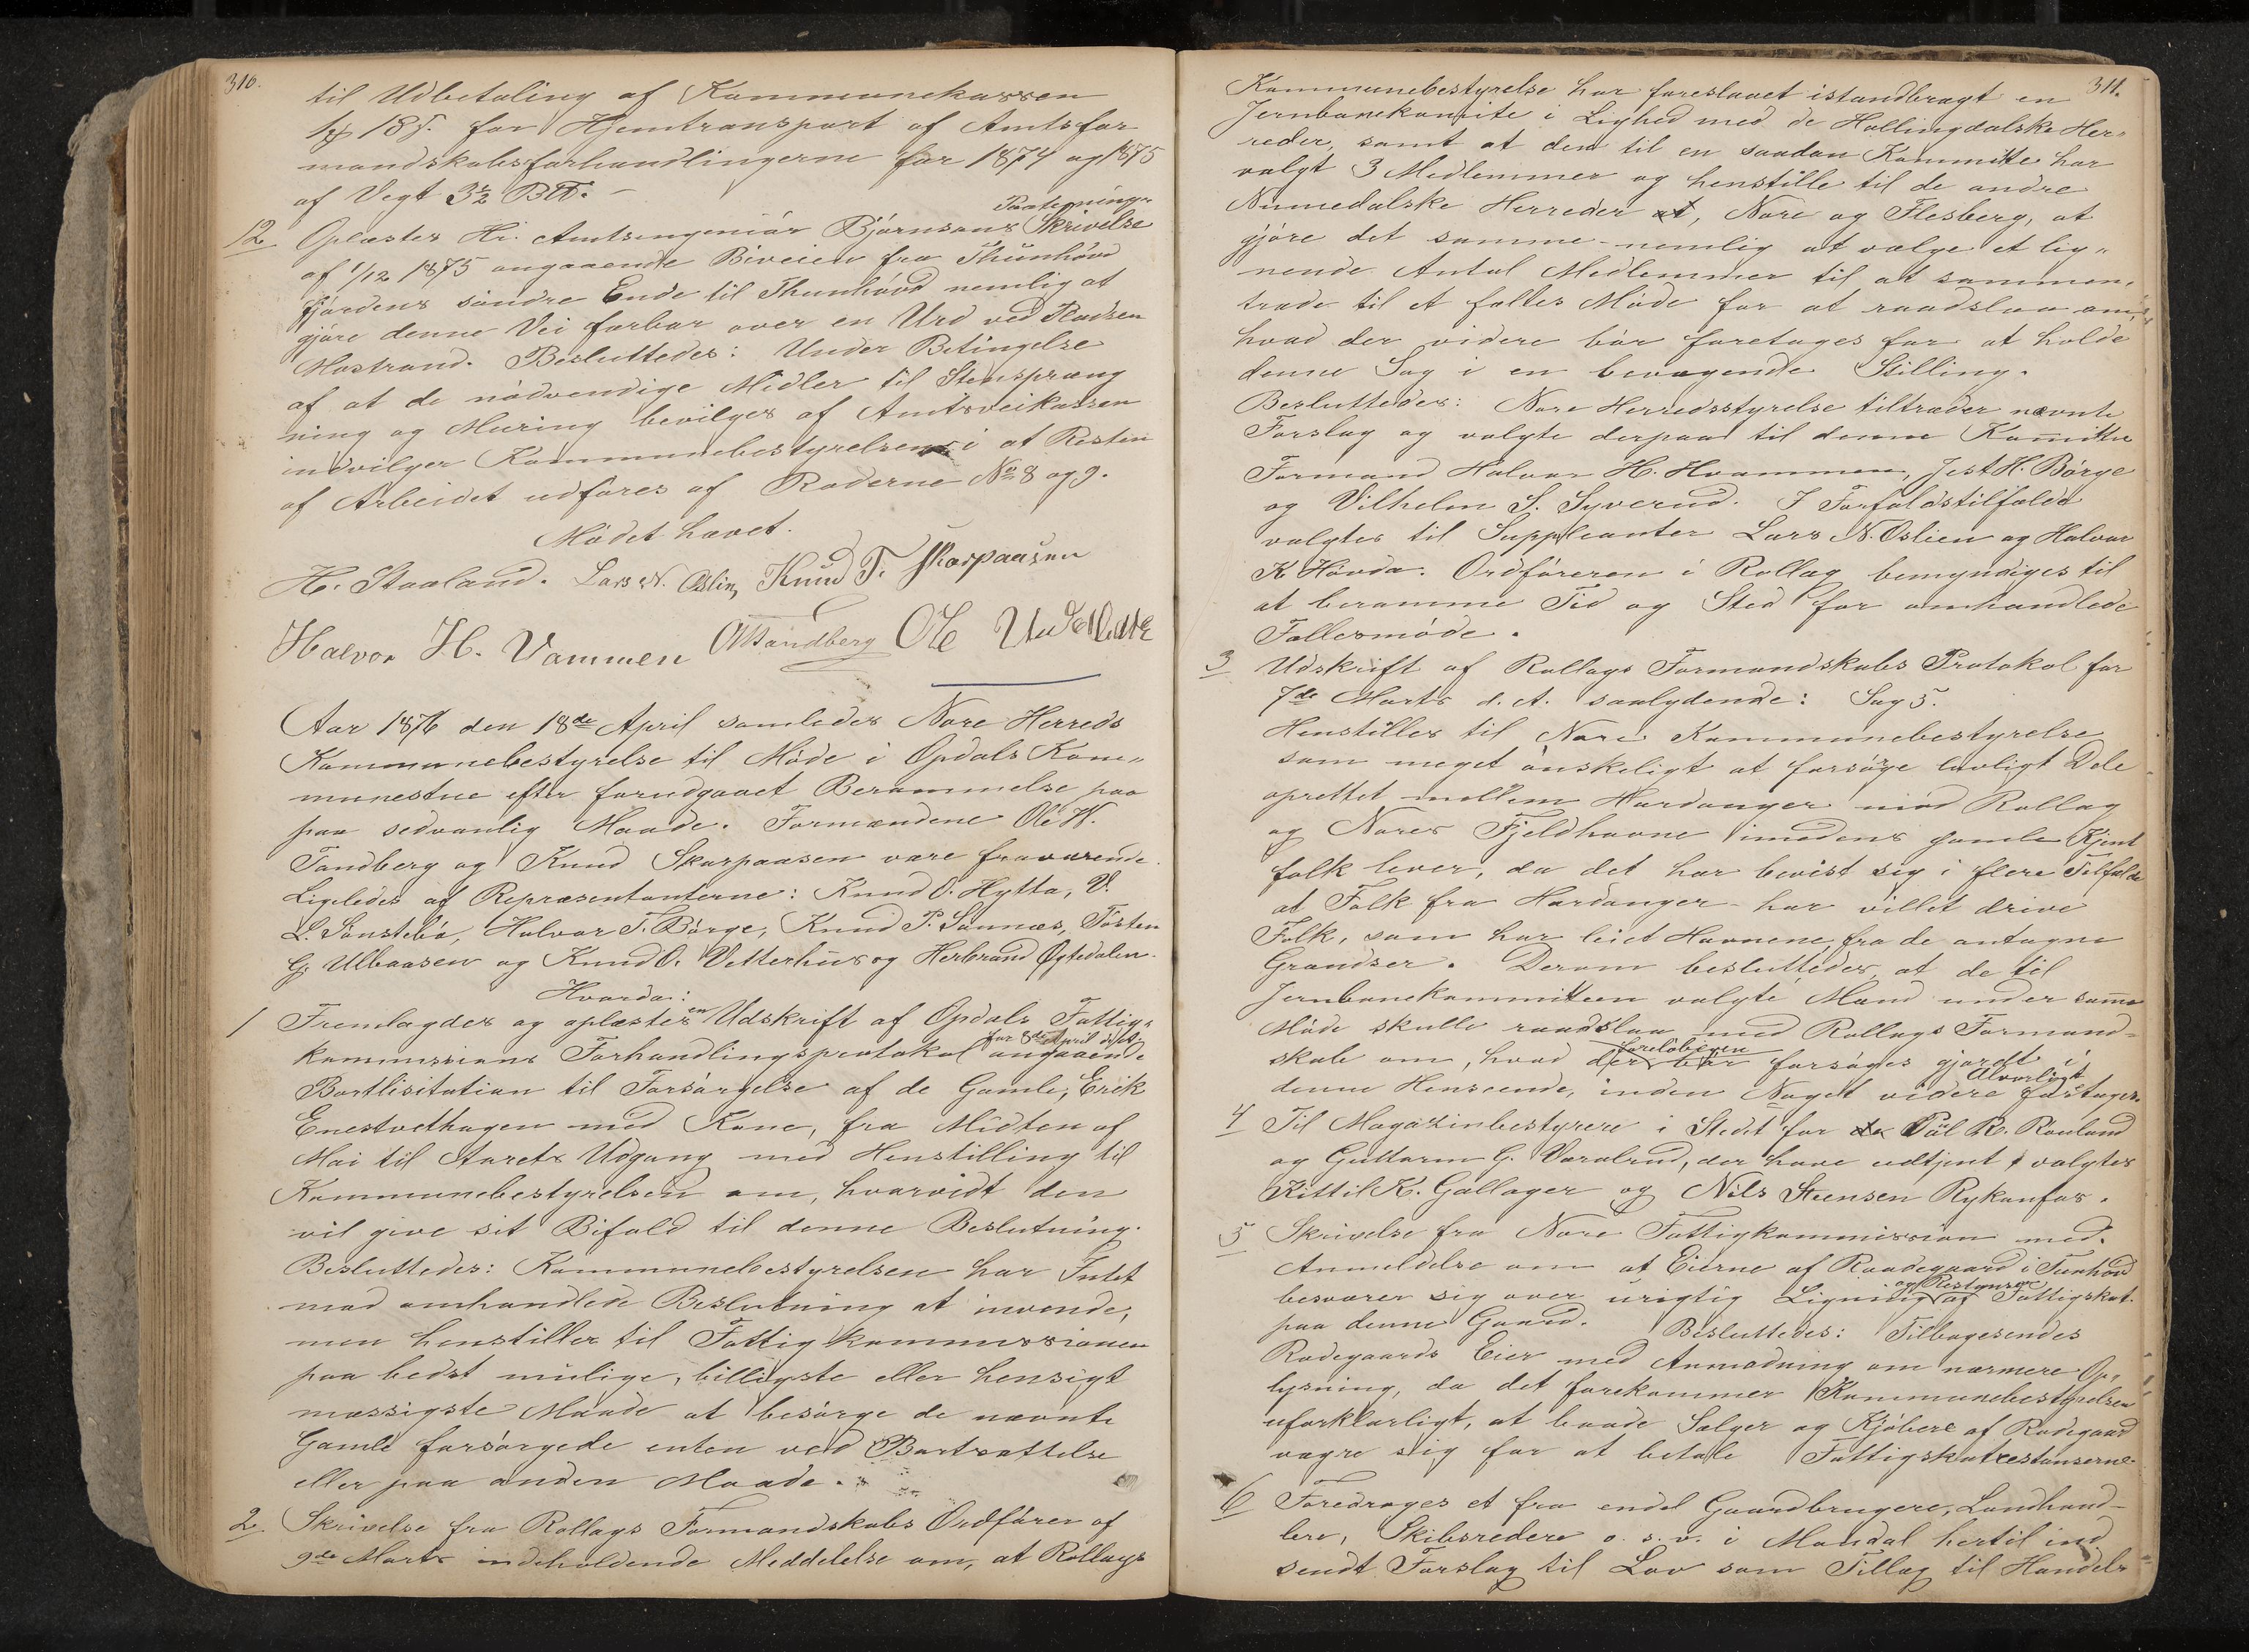 310.
til Udbetaling af Kommunekassen
for Hjemtransport af Amtsfor
mandskabsforhandlingerne for 1874 og 1875
af Vegt 3½
Paategning
12 Oplæstes Hr. Amtsingeniör Björnsons Skrivelse
af 1/12 1875 angaaende Biveien fra Thunhövd
fjordens söndre Ende til Thunhövd nemlig at
gjöre denne Vei farbar over en Urd ved Pladsen
Mostrand. Besluttedes: Under Betingelse
af at de nödvendige Midler til Stenspræng
ning og Muring bevilges af Amtsveikassen
indvilger Kommunebestyrelsen i at Resten
af Arbeidet udföres af Roderne No 8 og 9.
Mödet hævet.
H. Staaland. Lars N. Oslien, Knud T. Skarpaasen
Halvor H. Vammen Tandberg Ole
Aar 1876 den 18de April samledes Nore Herreds
Kommunebestyrelse til Möde i Opdals Kom„
munestue efter forudgaaet Berammelse paa
paa sedvanlig Maade. Formændene Ole W.
Tandberg og Knud Skarpaasen vare fraværende.
Ligeledes af Repræsentanterne: Knud O. Hytta, V.
L. Sönstebö, Halvor T. Börge, Knud P. Sönnæs, Tösten
G. Ulbaasen og Knud O. Vetterhus og Herbrand Ögtedalen.
Hvorda:
1 Fremlagdes og oplæstes en Udskrift af Opdals Fattig„
for 8de April d. A.
kommissions Forhandlingsprotokol angaaende
Bortlisitation til Forsörgelse af de Gamle, Erik
Enestvethagen med Kone, fra Midten af
Mai til Aarets Udgang med Henstilling til
Kommunebestyrelsen om, hvorvidt den
vil give sit Bifald til denne Beslutning.
Besluttedes: Kommunebestyrelsen har Intet
mod omhandlede Beslutning at invende,
men henstiller til Fattigkommissionen
paa bedst mulige, billigste eller hensigt
mæssigste Maade at besörge de nævnte
Gamle forsörgede enten ved Bortsættelse
eller paa anden Maade.
2. Skrivelse fra Rollags Formandskabs Ordförer af
9de Marts indeholdende Meddelelse om, at Rollags
311.
Kommunebestyrelse har foreslaaet istandbragt en
Jernbanekomite i Lighed med de Hallingdalske Her„
reder, samt at den til en saadan Kommitte har
valgt 3 Medlemmer og henstille til de andre
Numedalske Herreder at, Nore og Flesberg, at
gjöre det samme - nemlig at vælge et lig„
nende Antal Medlemmer til at sammen„
træde til et fælles Möde for at raadslaa om,
hvad der videre bör foretages for at holde
denne Sag i en bevægende Stilling.
Besluttedes: Nore Herredsstyrelse tiltræder nævnte
Forslag og valgte derpaa til denne Komitte
Formand Halvor H. Hvammen, Jest H. Börge
og Vilhelm S. Syverud. I Forfaldstilfælde
valgtes til Suppleanter Lars N. Oslien og Halvor
K Hövda. Ordföreren i Rollag bemyndiges til
at beramme Tid og Sted for omhandlede
Fællesmöde.
3 Udskrift af Rollags Formandskabs Protokol for
7de Marts d. A. saalydende: Sag 5.
Henstilles til Nore Kommunebestyrelse
som meget önskeligt at forsöge lovligt Dele
oprettet mellem Hardanger mod Rollag
og Nores Fjeldhavne imedens gamle Kjent
folk lever, da det har bevist sig i flere Tilfælde
at Folk fra Hardanger har villet drive
Folk, som har leiet Havnene, fra de antagne
Grændser. Derom besluttedes, at de til
Jernbanekommitteen valgte Mænd under samme
Möde skulle raadslaa med Rollags Formand-
foreløbigen
skab om, hvad der bör forsöges gjordt i
Alvorligt
denne Henseende, inden Noget videre foretages.
4 Til Magazinbestyrere i Stedet for de Pål R. Rouland
og Guttorm G. Væralrud, der have udtjent valgtes
Kittil K. Gallager og Nils Steensen Rykanfos.
5 Skrivelse fra Nore Fattigkommission med
Anmeldelse om at Eierne af Raadegaard i Tunhövd
og Restanserne
besværer sig over urigtig Ligning af Fattigskat
paa denne Gaard. Besluttedes: Tilbagesendes
Rodegaards Eier med Anmodning om nærmere Op„
lysning, da det forekommer Kommunebestyrelsen
uforklarligt, at baade Sælger og Kjöbere af Rodegaard
vægre sig for at betale Fattigskatrestanserne.
6 Foredroges et fra endel Gaardbrugere, Landhand-
lere, Skibsredere o. s. v. i Mandal hertil ind
sendt Forslag til Lov som Tillæg til Handels